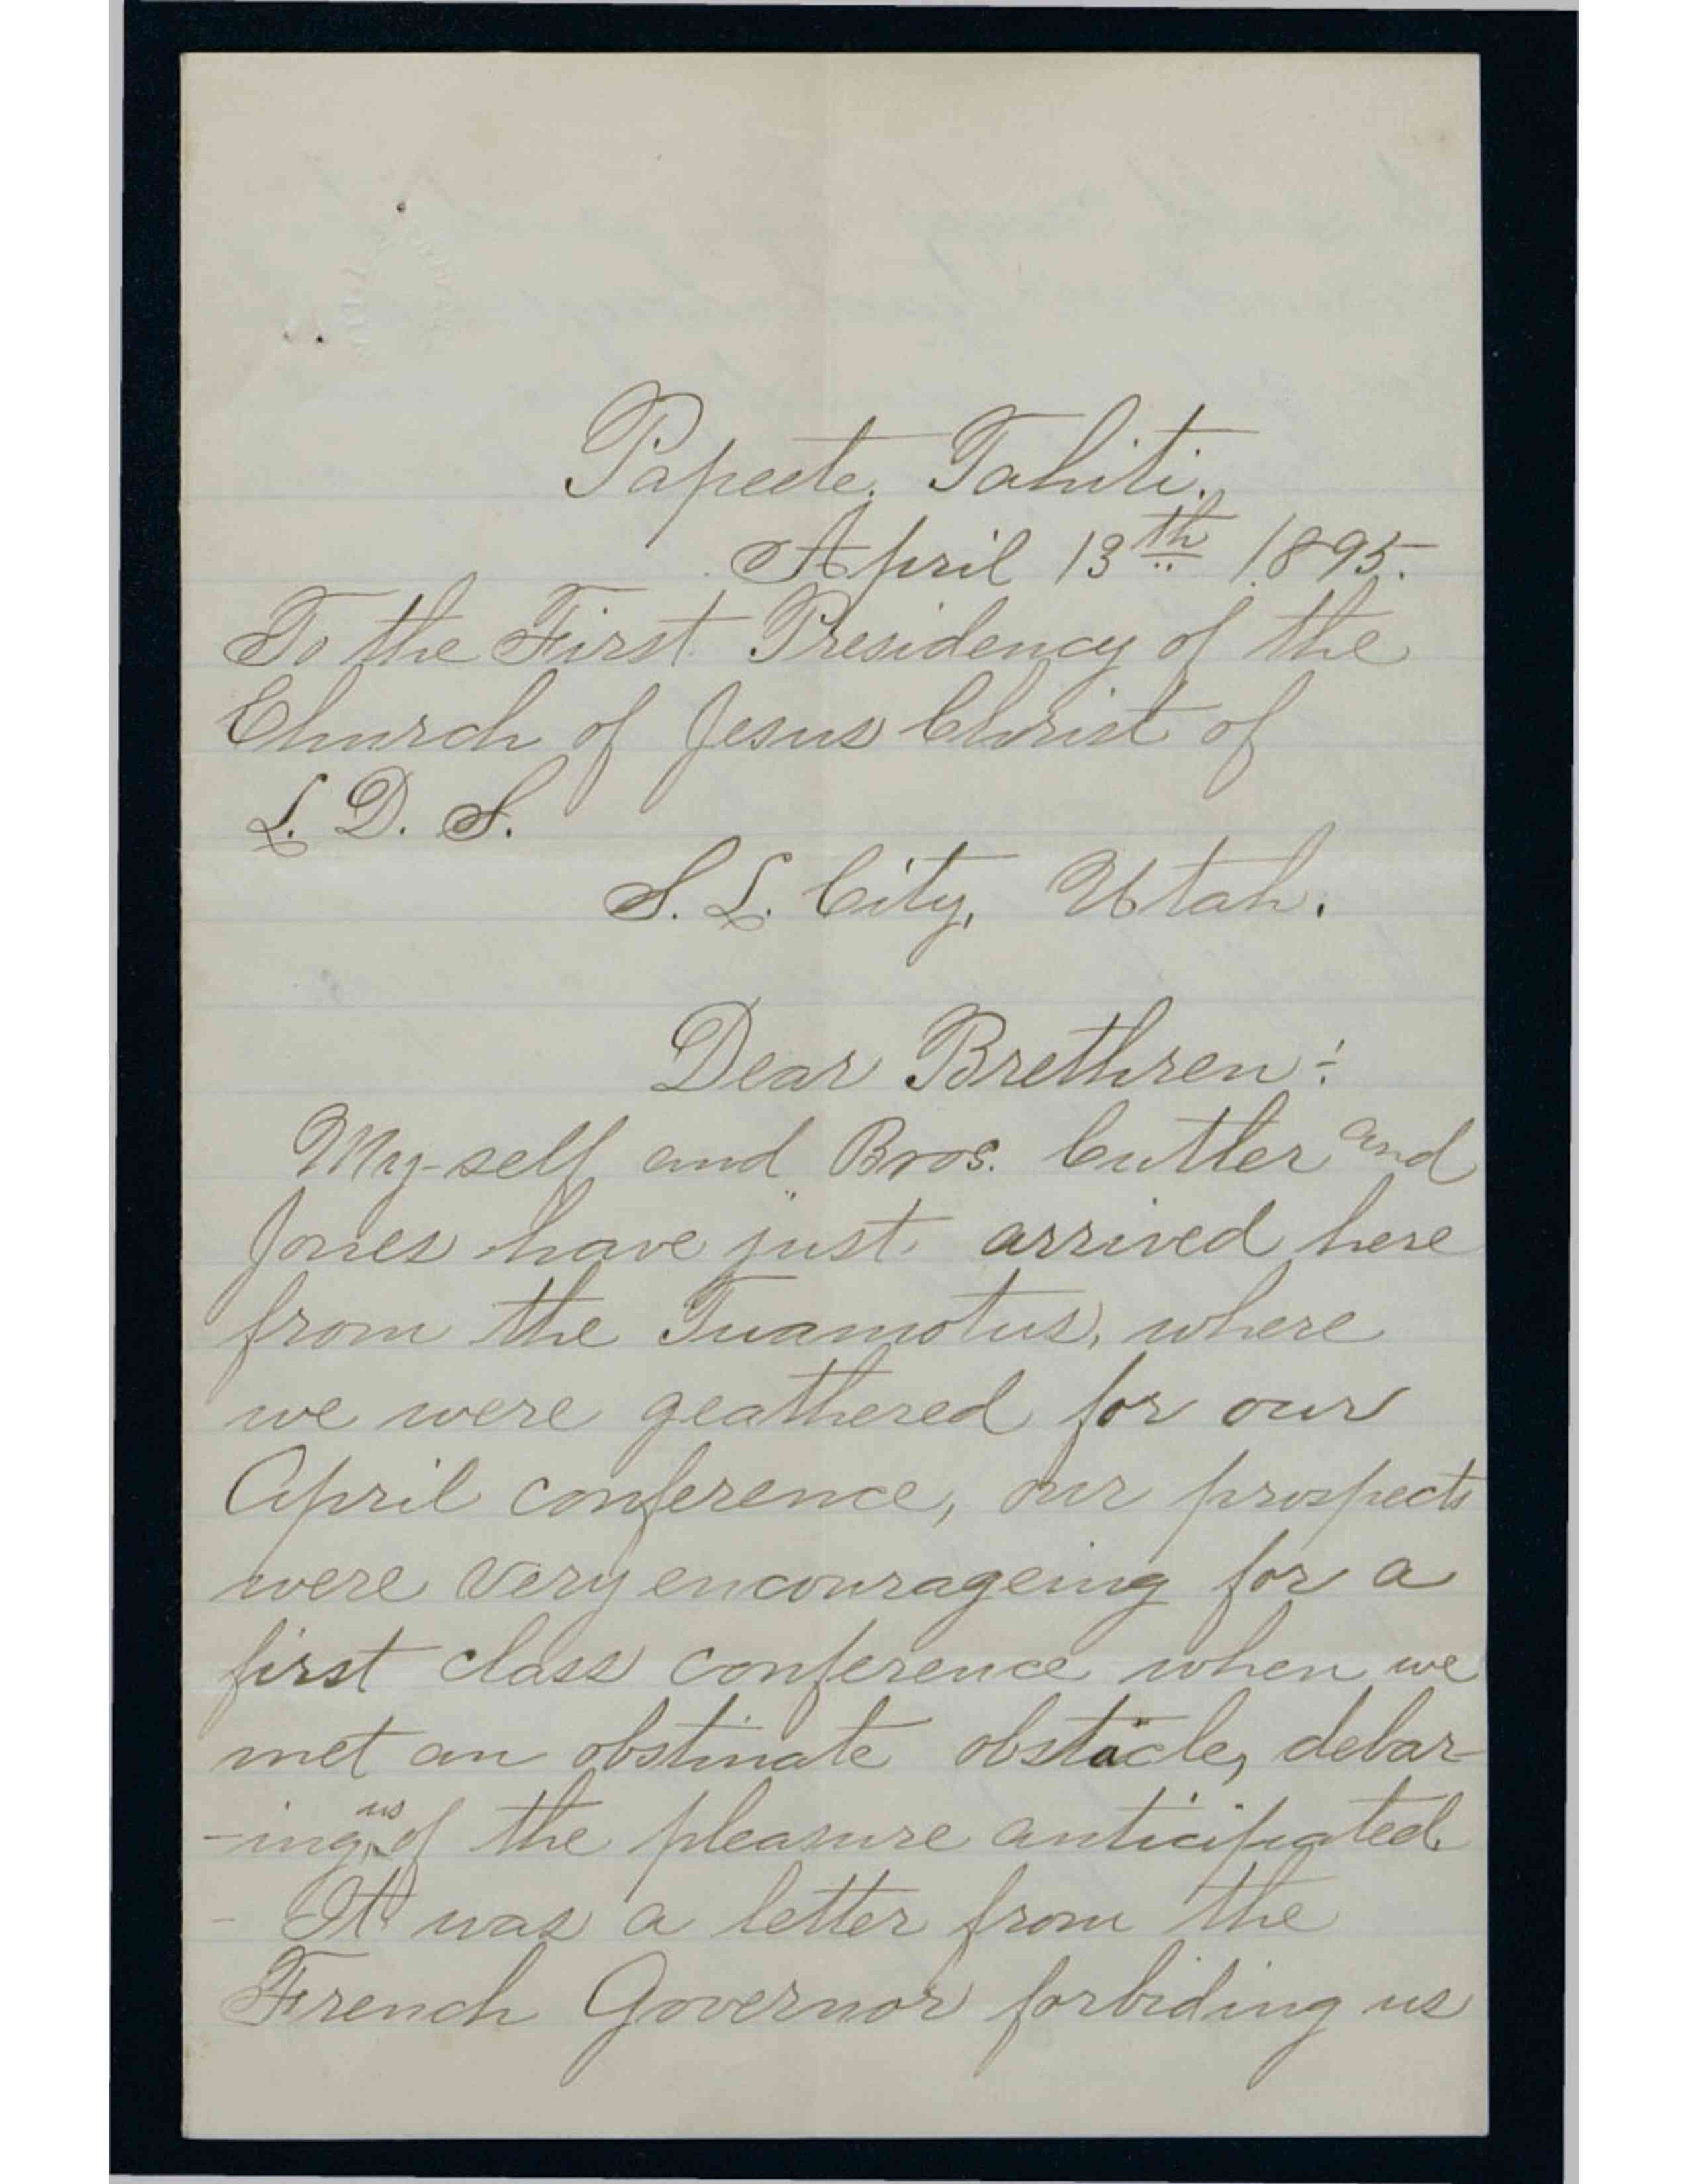 Papeete. Tahiti.
April 13th 1895.
To the First Presidency of the
Church of Jesus Christ of
L. D. S.
S. L. City, Utah.
Dear Brethren:
My-self and Bros. Cutler and
Jones have just arrived here
from the Tuamotus, where
we were geathered for our
April conference, our prospects
were very encourageing for a
first class conference when we
met an obstinate obstacle, debar-
-ing us of the pleasure anticipated.
- It was a letter from the
French Governor forbiding us